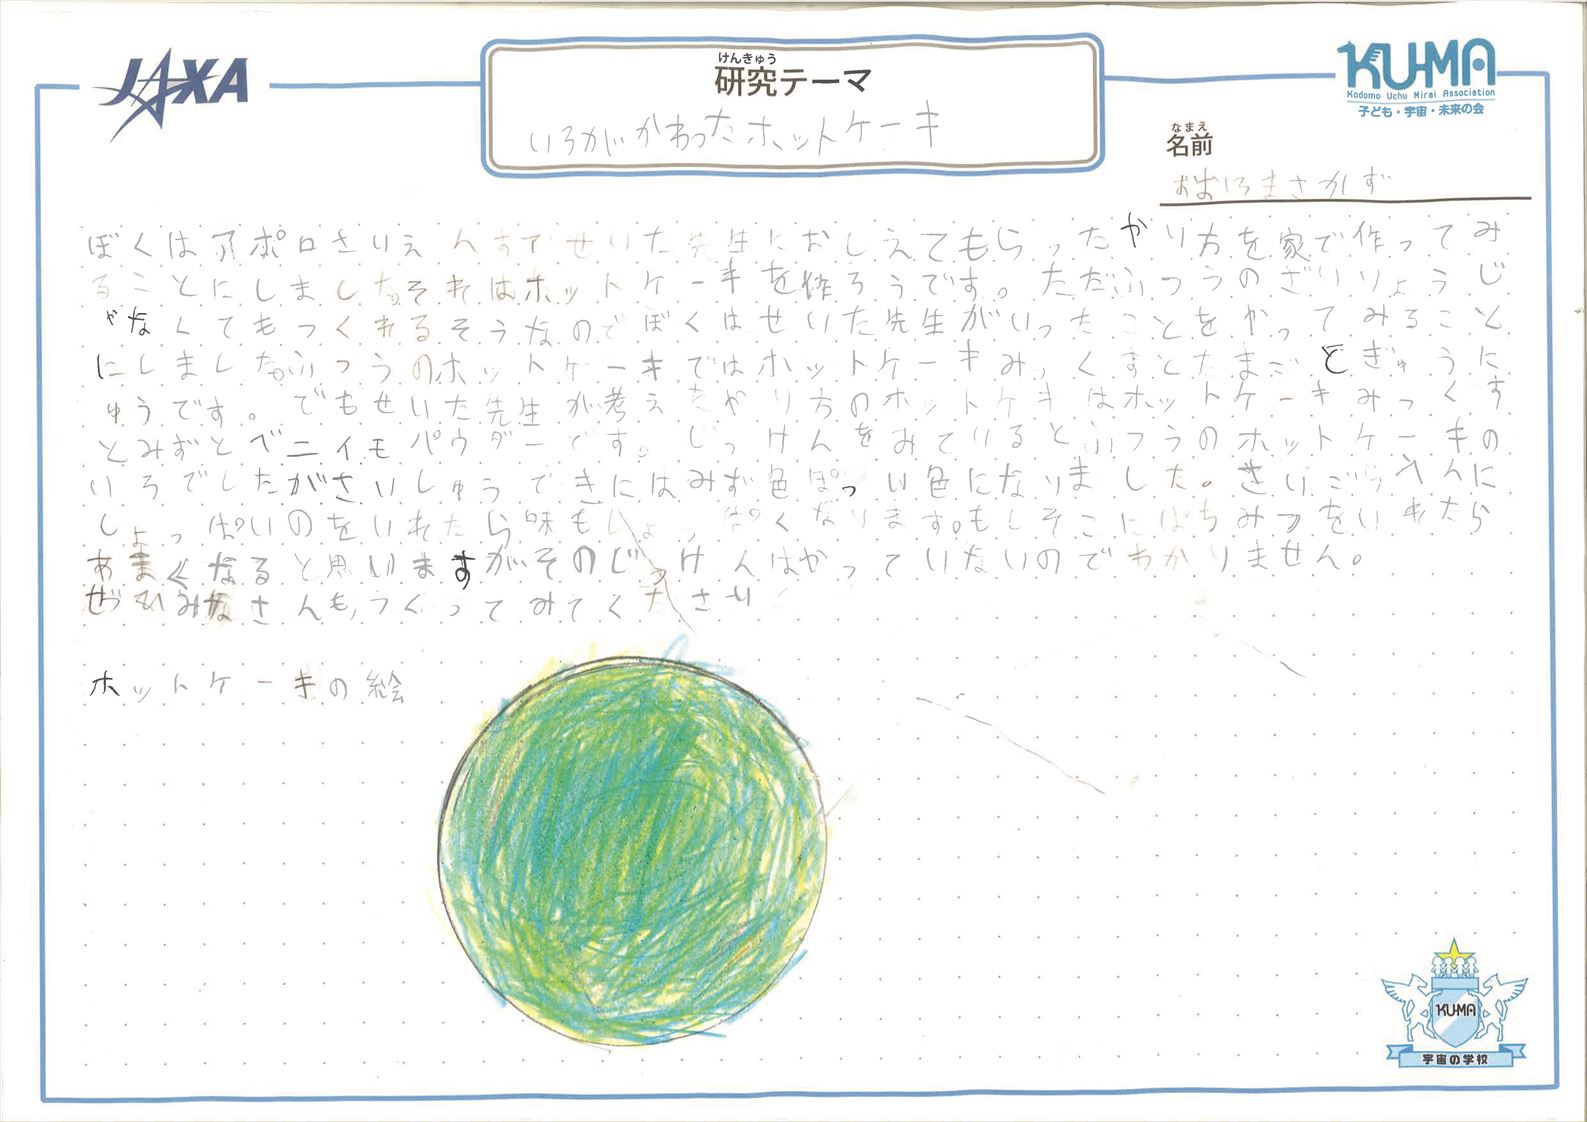 JAXA
けんきゅう
研究テーマ
いろがかわったホットケーキ
KUMA
Kodomo Uchu Mirai Association
子ども・宇宙・未来の会
なまえ
名前
まさかず
ぼくはアポロさいえんすでせいた先生におしえてもらったやり方を家で作ってみ
ることにしました。それはホットケーキを作ろうです。ただふつうのざいりょうじ
ゃなくてもつくれるそうなのでぼくはせいた先生がいったことをやってみること
にしました。ふつうのホットケーキではホットケーキみっくすとたまごとぎゅうに
ゅうです。でもせいた先生が考えたやり方のホットケキはホットケーキみっくす
とみずとベニイモパウダーです。じっけんをみているとふつうのホットケーキの
いろでしたがさいしゅうてきにはみず色ぽっい色になりました。さいごら入んに
しょっぱいのをいれたら味もしょっぱくなります。もしそこにはちみつをいれたら
あまくなると思いますがそのじっけんはやっていないのでわかりません。
ぜひみなさんも、つくってみてくださり
ホットケーキの絵
KUMA
宇宙の学校